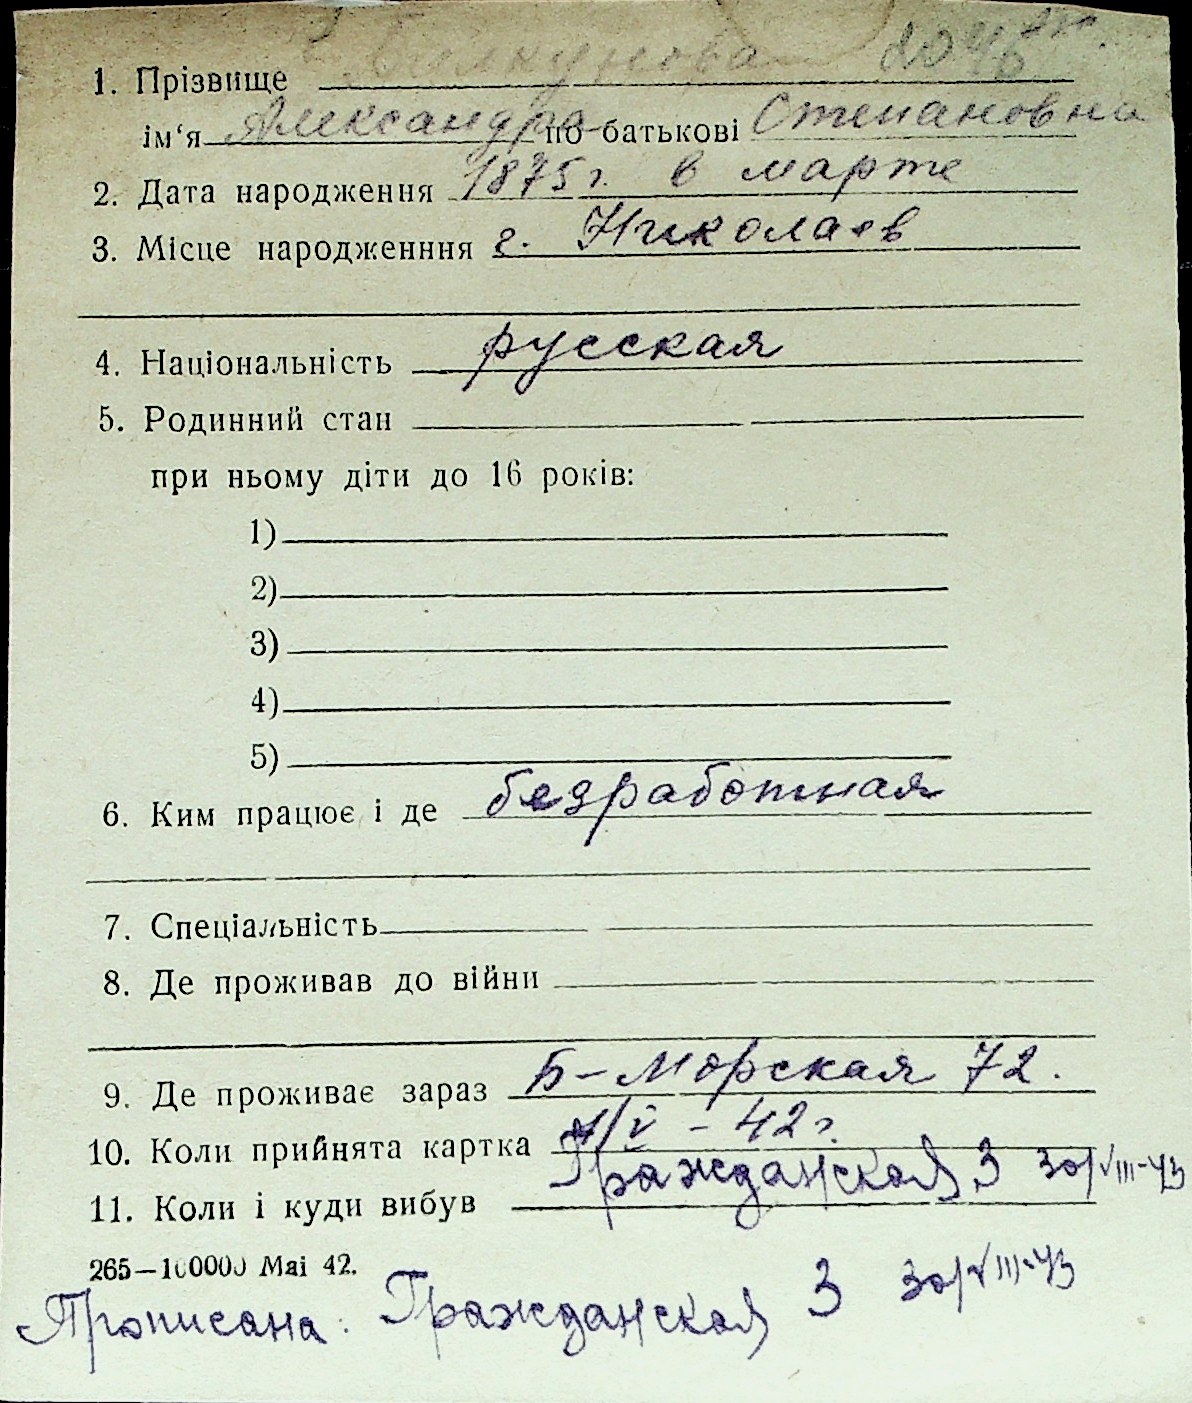 1. Прізвище
ім‘я Александра по-батькові Степановна
2. Дата народження 1875г. в марте
3. Місце народженння г. Николаев
4. Національність русская
5. Родинний стан
при ньому діти до 16 років:
1)
2)
3)
4)
5)
6. Ким працює і де безработная
7. Спеціальність
8. Де проживав до війни
9. Де проживає зараз Б-Морская 72.
10. Коли прийнята картка /V - 42 г.
11. Коли і куди вибув Гражданская 3 30/VIII-43
265—100000 Mai 42.
Прописана: Гражданская 3 30/VIII-43